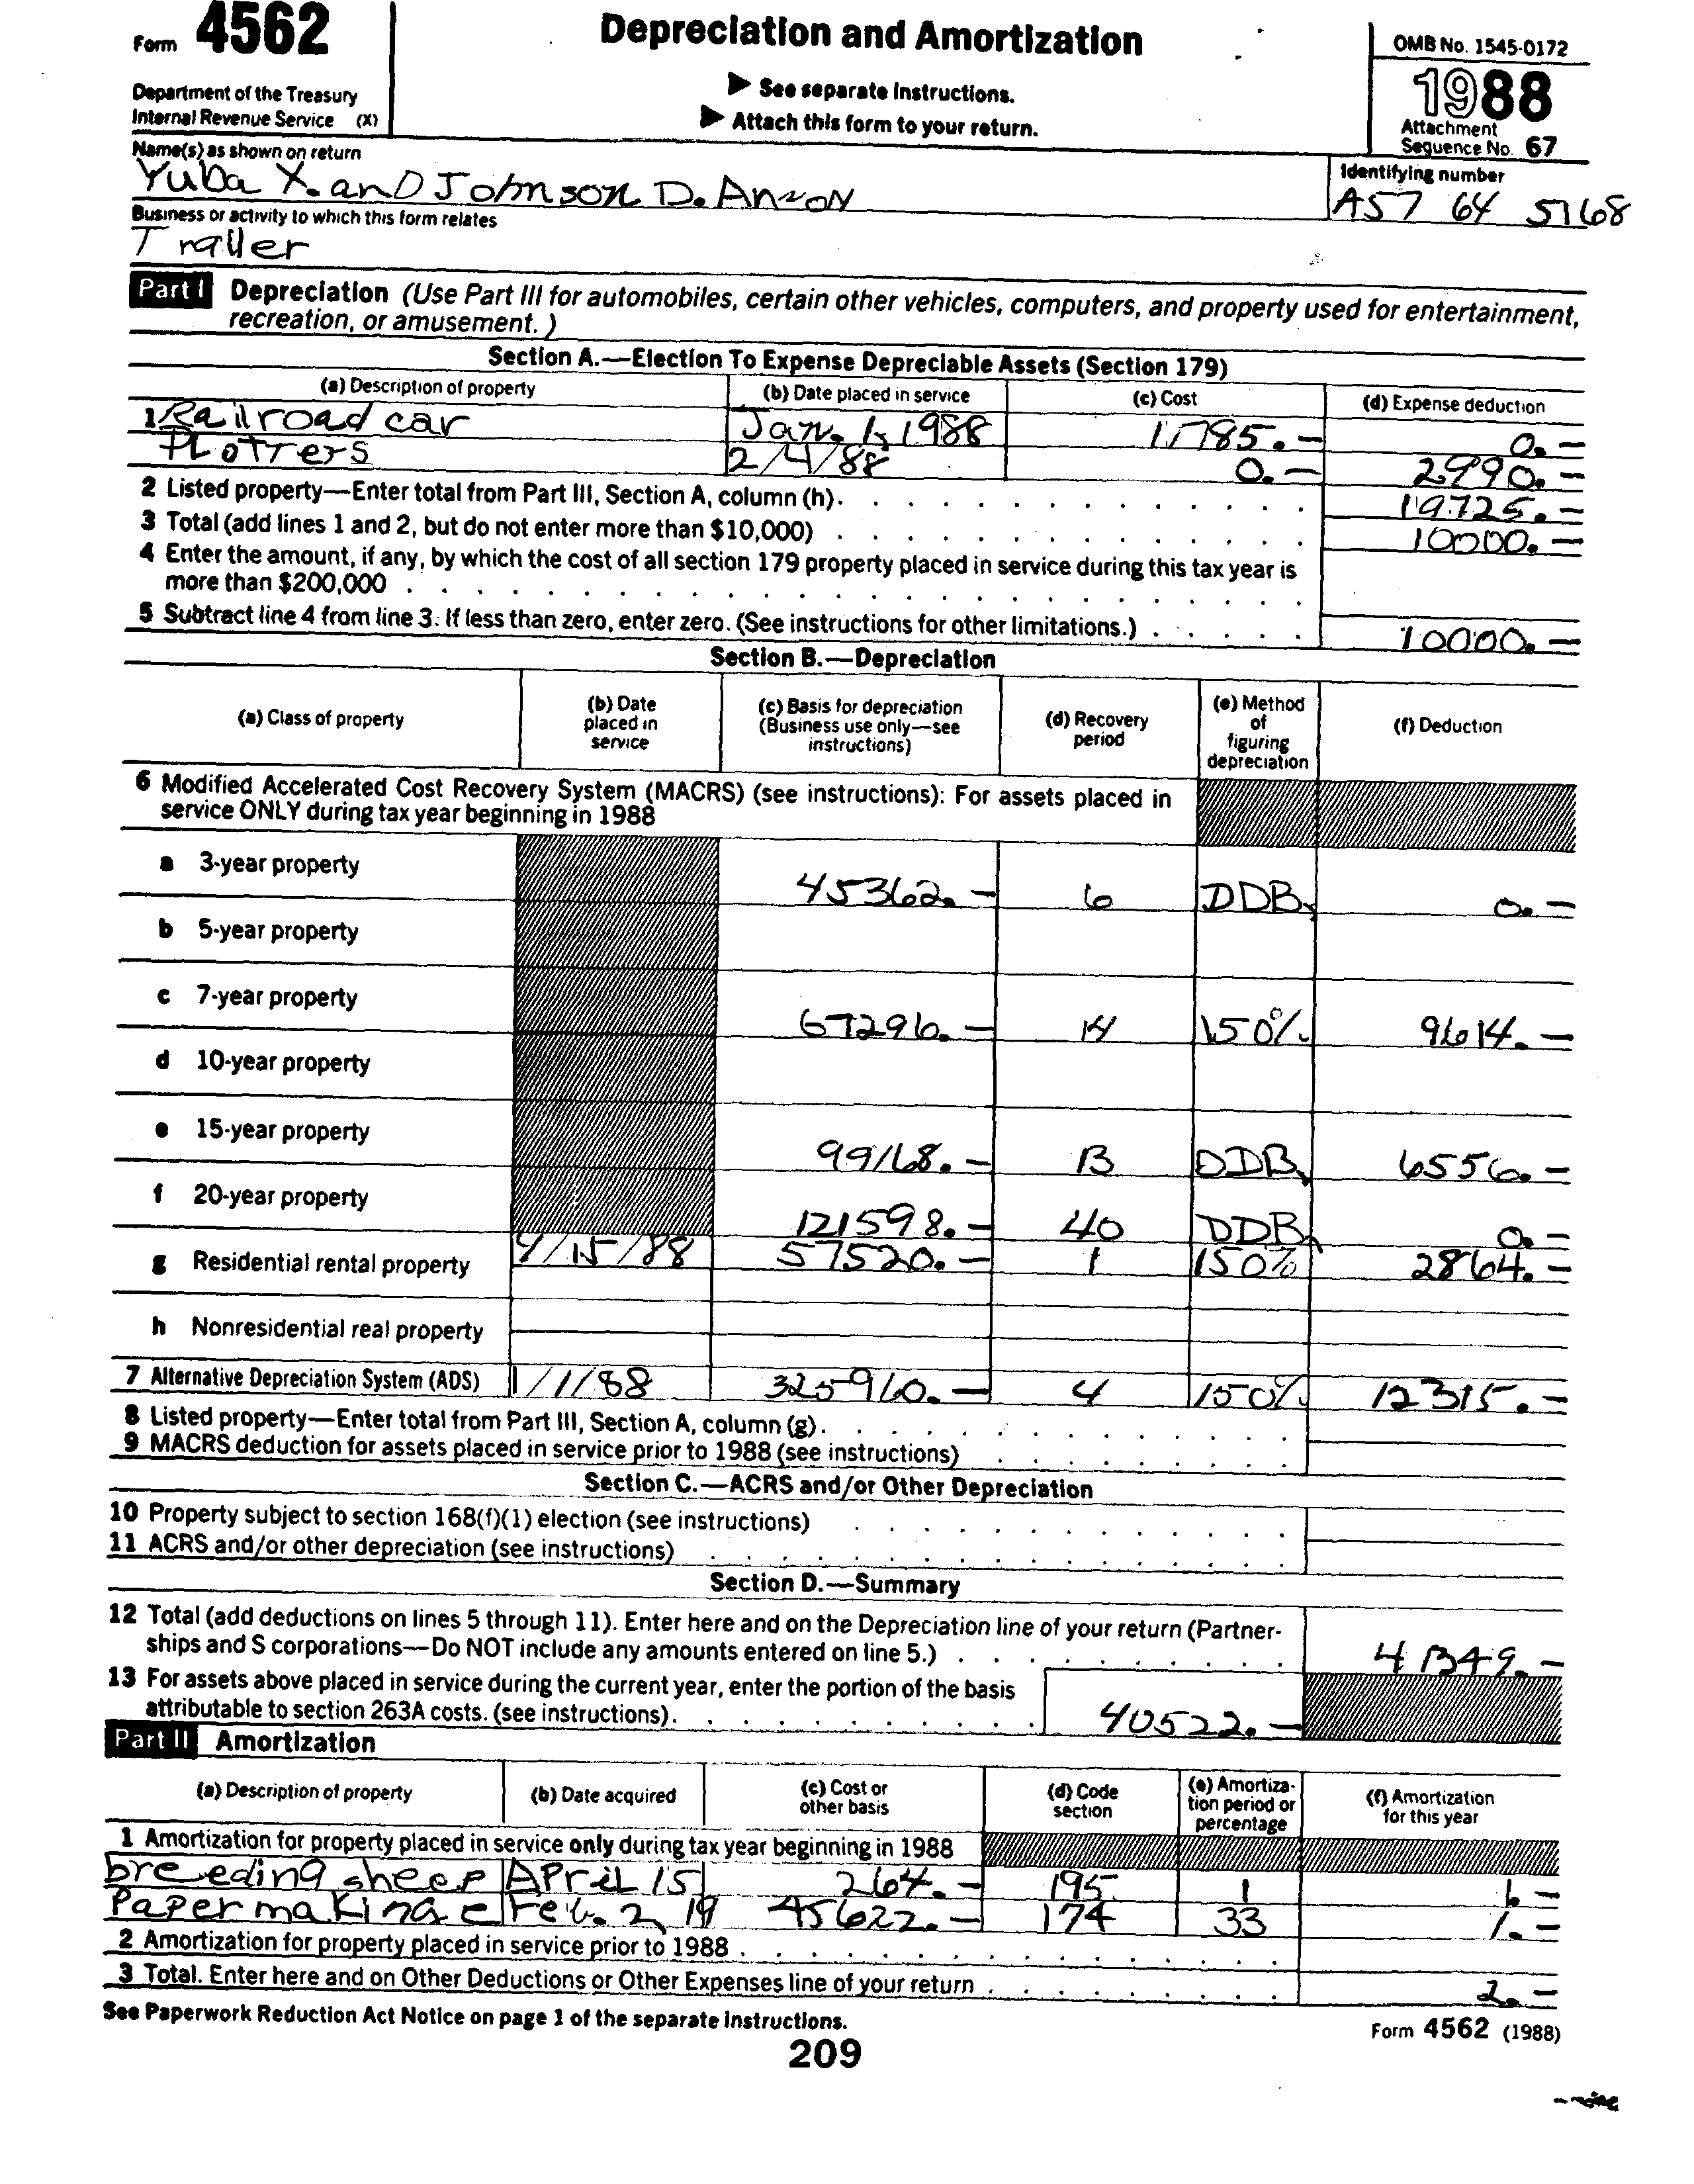 Form 4562
Depreciation and Amortization
OMB No. 1545-0172
1988
Department of the Treasury
Internal Revenue Service (X)
▶ See separate instructions.
▶ Attach this form to your return.
Attachment
Sequence No. 67
Name(s) as shown on return
Identifying number
Yuba X. and Johnson D. Anson
A57 64 5768
Business or activity to which this form relates
Traller
Part I Depreciation (Use Part III for automobiles, certain other vehicles, computers, and property used for entertainment,
recreation, or amusement.)
Section A.—Election To Expense Depreciable Assets (Section 179)
(a) Description of property (b) Date placed in service (c) Cost (d) Expense deduction
1 Railroad car Jan. 1, 1988 11785.– 0.–
PLotters 2/4/88 0.– 2990.–
2 Listed property—Enter total from Part III, Section A, column (h). 19725.–
3 Total (add lines 1 and 2, but do not enter more than $10,000) 10000.–
4 Enter the amount, if any, by which the cost of all section 179 property placed in service during this tax year is
more than $200,000
5 Subtract line 4 from line 3. If less than zero, enter zero. (See instructions for other limitations.) 10000.–
Section B.—Depreciation
(a) Class of property (b) Date placed in service (c) Basis for depreciation (Business use only—see instructions) (d) Recovery period (e) Method of figuring depreciation (f) Deduction
6 Modified Accelerated Cost Recovery System (MACRS) (see instructions): For assets placed in
service ONLY during tax year beginning in 1988
a 3-year property 45362.– 6 DDB 0.–
b 5-year property
c 7-year property 67296.– 14 150% 9614.–
d 10-year property
e 15-year property 99168.– 13 DDB 6556.–
f 20-year property 121598.– 40 DDB 0.–
g Residential rental property 4/15/88 57520.– 1 150% 2864.–
h Nonresidential real property
7 Alternative Depreciation System (ADS) 1/1/88 325960.– 4 150% 12315.–
8 Listed property—Enter total from Part III, Section A, column (g).
9 MACRS deduction for assets placed in service prior to 1988 (see instructions)
Section C.—ACRS and/or Other Depreciation
10 Property subject to section 168(f)(1) election (see instructions)
11 ACRS and/or other depreciation (see instructions)
Section D.—Summary
12 Total (add deductions on lines 5 through 11). Enter here and on the Depreciation line of your return (Partner-
ships and S corporations—Do NOT include any amounts entered on line 5.) 41349.–
13 For assets above placed in service during the current year, enter the portion of the basis
attributable to section 263A costs. (see instructions). 40522.–
Part II Amortization
(a) Description of property (b) Date acquired (c) Cost or other basis (d) Code section (e) Amortization period or percentage (f) Amortization for this year
1 Amortization for property placed in service only during tax year beginning in 1988
breeding sheep April 15 264.– 195 1 1.–
Paper making e Feb. 2, 19 45622.– 174 33 1.–
2 Amortization for property placed in service prior to 1988
3 Total. Enter here and on Other Deductions or Other Expenses line of your return 2.–
See Paperwork Reduction Act Notice on page 1 of the separate instructions.
Form 4562 (1988)
209